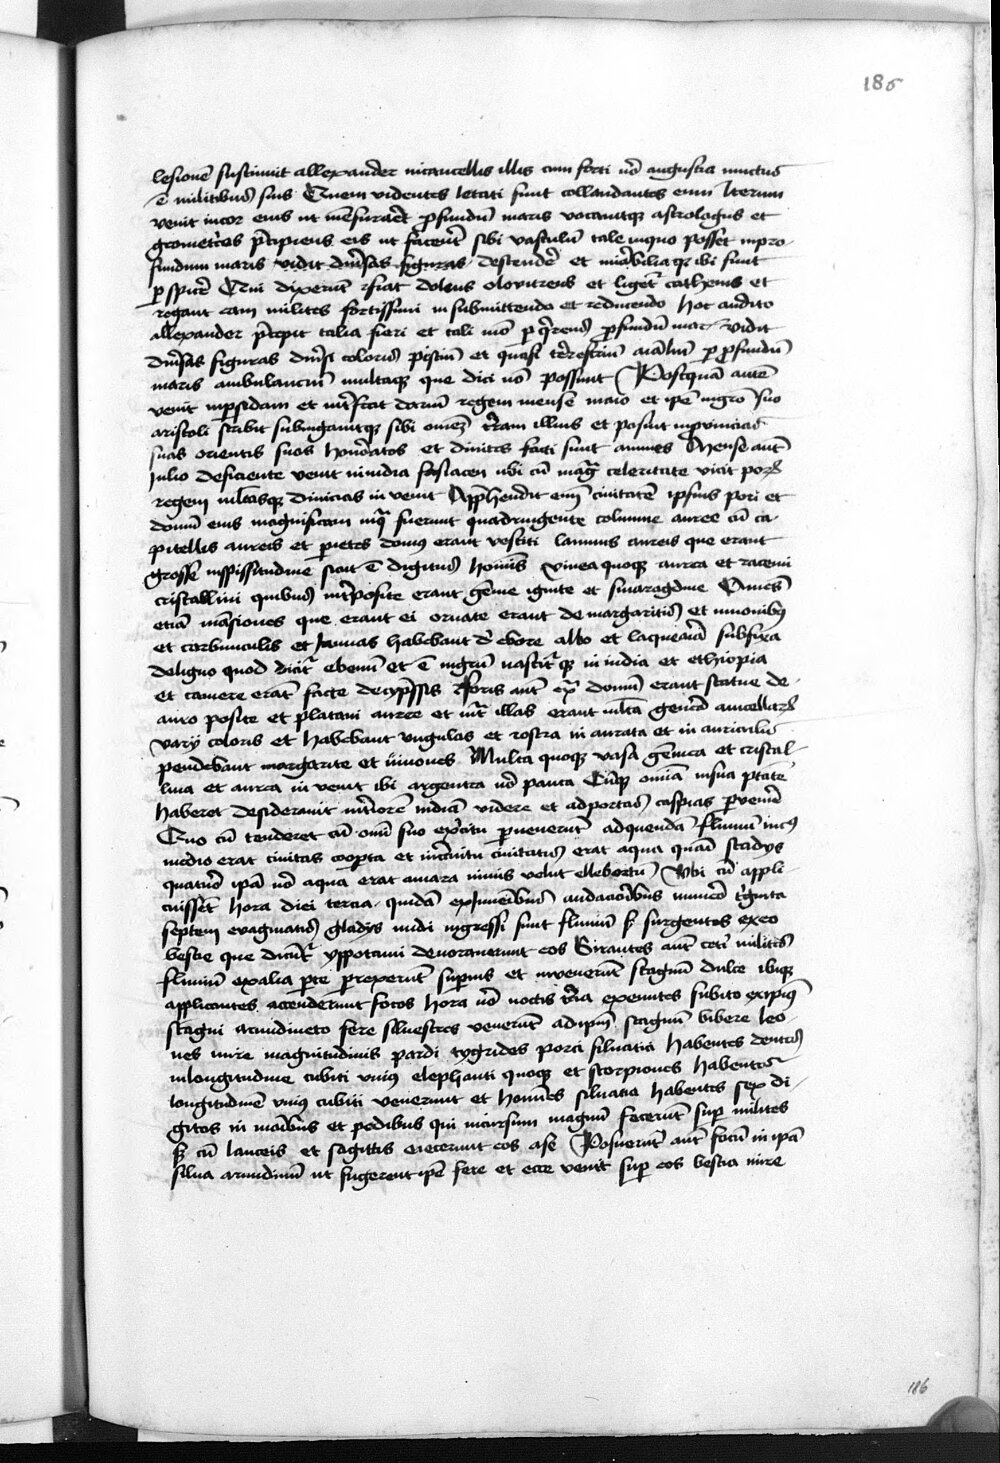 186
lesionē sustinuit allexander in cancellis illis cum forti n̄o angustia iunctus
ē militibus suis Quem videntes letati sunt collaudantes eum Iterum
venit in cor eius ut mēsuraret profundū maris vocauitque astrologus et
geometros p̄cipiens eis ut facerēt sibi vasculū tale in quo posset in pro-
fundum maris vidit diūsas figuras descendē et mirabilia que ibi sunt
perspicē Qui dixerūt fiat doleus olouitreus et ligēt cathenis et
regant eam milites fortissimi in submittendo et reducendo hoc audito
allexander p̄cepit talia fieri et tali mō perquirens profundū mar vidit
diūsas figuras diūsi colorū pisciū et quasi terrestriū aīaliū per profundū
maris ambulanciū multaque que dici nō possunt Postquā autē
venit in persidam et interfecit dariū regem mense maio et ipē nigro suo
aristoli scribit subiugauitque sibi omēs terram illius et posuit in prouincias
suas orientis suos honoratos et diuites facti sunt omnes Mense autē
Iulio deficiente venit in india fasiacen ubi cū magna celeritate vicit porū
regem multasque diuicias inuenit Apprehendit eius ciuitatē ipsius pori et
domū eius magnificam in qua fuerunt quadringente columne auree cū ca-
pitellis aureis et parietes domus erant vestiti laminis aureis que erant
grosse in spissitudine sicut ē digitus hominis vinea quoque aurea et racemi
cristallini quibus interposite erant gēme ignite et smaragdine Omēs
etiā mansiones que erant ei ornate erant de margaritis et unionibus
et carbunculis et Ianuas habebant de ebore albo et laquearia subfixa
de ligno quod dicitur ebenū et ē nigrū nasciturque in india et ethiopia
et camere erāt facte de cypressis Foris autē extra domū erant statue de
auro posite et platani auree et inter illas erant multa genera aucellarū
varij coloris et habebant ungulas et rostra in aurata et in auriculis
pendebant margarite et uniones Multa quoque vasa gēmea et cristal-
lina et aurea inuenit ibi argentea uō pauca Cūque omīa in sua ptate
haberet desiderauit interiorē indiā videre et ad portas caspias peruenire
Quo cū tenderet cū omī suo exercitu peruenerūt ad quendā fluuiū in cuius
medio erat ciuitas coopta et in circuitu ciuitatis erat aqua quasi stadijs
quatuor ipā uō aqua erat amara nimis velut elleborū Ubi cū appli-
cuissēt hora diei tercia quidā ex hominibus audacioribus numero triginta
septem euaginatis gladijs nudi ingressi sunt fluuiū s surgentes ex eo
bestie que dicūtur yppotami deuorauerunt eos Girantes autē ceteri milites
fluuiū ex alia parte perrexerūt superius et inuenerūt stagnū dulce ibique
applicantes accenderunt focos hora uō noctis tercia exeuntes subito ex ipius
stagni arundineto fere siluestres venerūt ad ipm stagnū bibere leo-
nes mire magnitudinis pardi tygrides porci siluatici habentes dentes
in longitudine cubiti unius elephanti quoque et scorpiones habentes
longitudinē unius cubiti venerunt et homines siluatici habentes sex di-
gitos in manibus et pedibus qui incursum magnū fecerūt super milites
s cū lanceis et sagittis eiecerunt eos a se Posuerūt autē focū in ipā
silua arundinū ut fugerent ipē fere et ecce venit super eos bestia mire
186